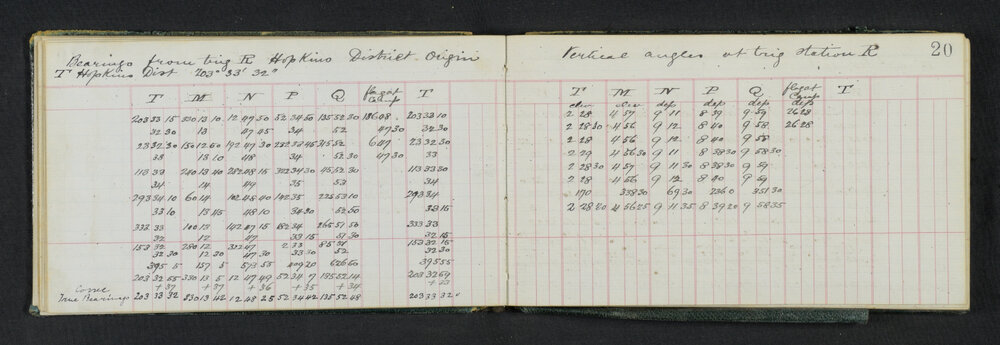 Bearings from trig R Hopkins District Origin
T Hopkins Dist 203° 33' 32"
T M N P Q flag at Camp T
203 33 15 330 13 10 12 47 50 52 34 50 135 52 50 186 08 203 33 10
32 30 13 47 45 34 52 47 30 32 30
23 32 30 150 12 60 192 47 30 6 47 23 32 30
33 13 10 48 34 52 30 47 30 33
113 33 280 13 40 282 48 15 322 34 30 45 52 30 113 33 30
34 14 49 35 53 34
293 34 10 60 14 102 48 40 293 34
33 10 13 45 48 10 34 30 52 50 33 15
333 33 100 13 142 47 15 182 34 265 51 50 333 33
32 12 47 33 15 51 30 32 15
153 32 280 12 322 47 2 33 85 51 153 32 15
32 30 12 30 47 30 33 30 52 32 30
395 5 157 5 573 55 409 20 626 60 395 55
203 32 55 330 13 5 12 47 49 52 34 7 135 52 14 203 32 59
Corrn + 37 + 37 + 36 + 35 + 34 + 33
True Bearings 203 33 32 330 13 42 12 48 25 52 34 42 135 52 48 203 33 32"
Vertical angles at trig station R 20
T M N P Q flag at Camp T
elev elev dep dep dep dep
2 28 4 57 9 11 8 39 9 59 26 28
2 28 30 4 56 9 12 8 40 9 58 26 28
2 28 4 56 9 12 8 40 9 58
2 29 4 56 30 9 11 8 38 30 9 58 30
2 28 30 4 57 9 11 30 8 38 30 9 59
2 28 4 56 9 12 8 40 9 59
170 338 30 69 30 236 0 351 30
2 28 20 4 56 25 9 11 35 8 39 20 9 58 35